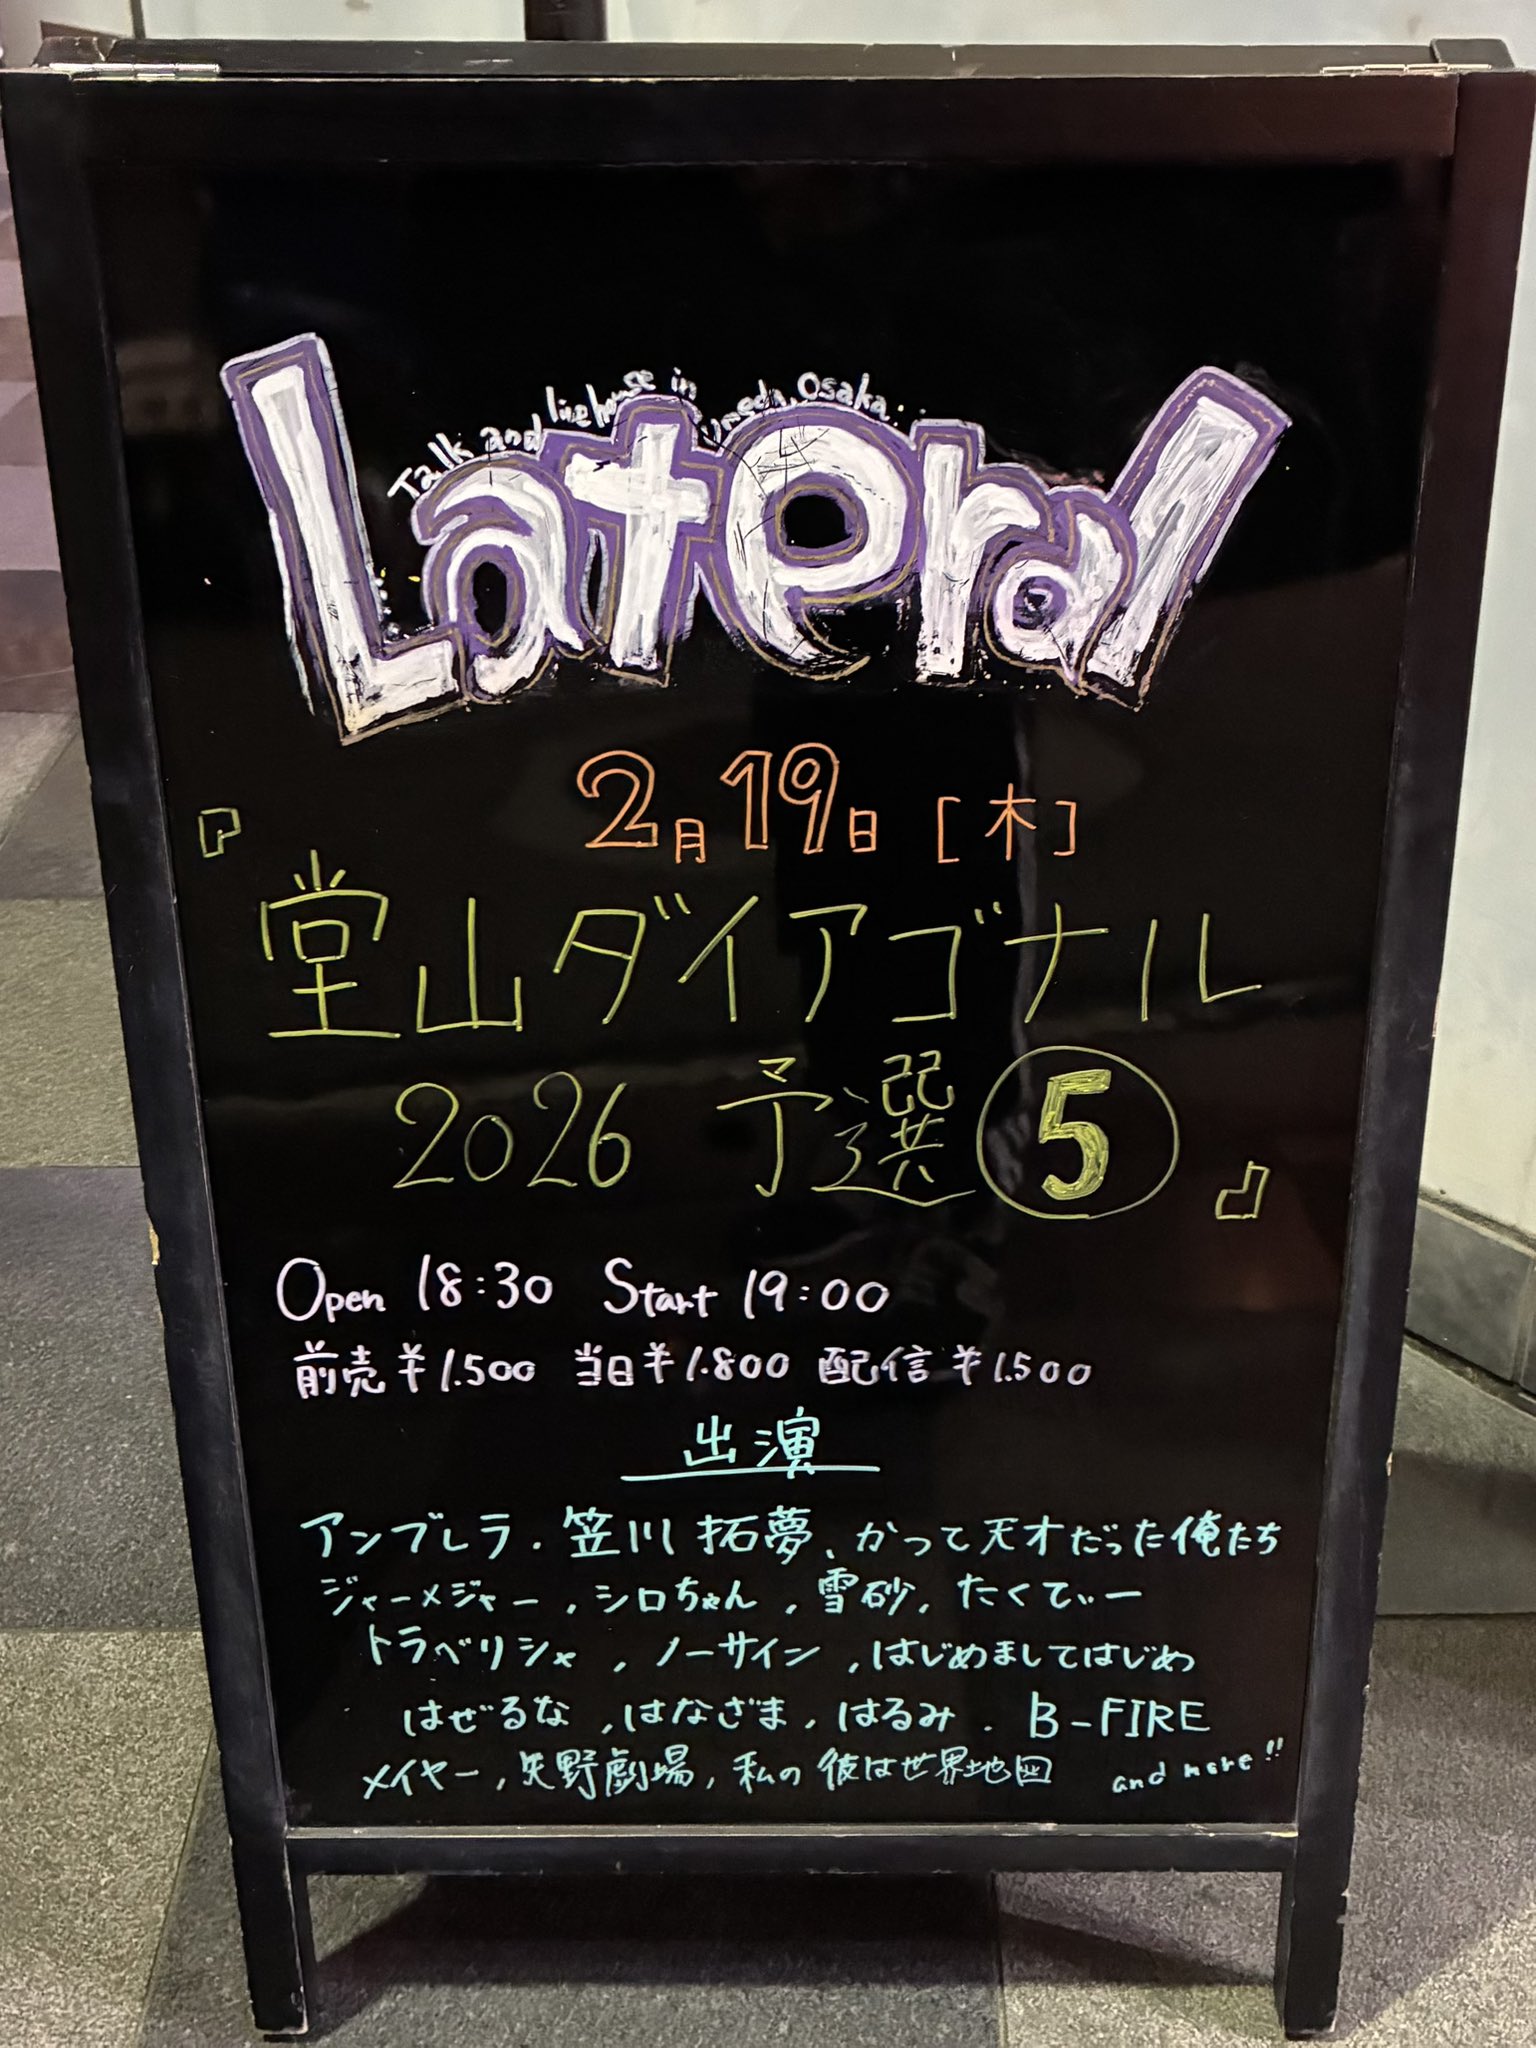 Talk and livehouse in umeda, Osaka
Lateral
2月19日[木]
『堂山ダイアゴナル
2026 予選⑤』
Open 18:30 Start 19:00
前売¥1.500 当日¥1.800 配信¥1.500
出演
アンブレラ、笠川拓夢、かって天才だった俺たち
ジャーメジャー、シロちゃん、雪砂、たくてぃー
トラベリシャ、ノーサイン、はじめましてはじめ
はぜるな、はなざま、はるみ、B-FIRE
メイヤー、矢野劇場、私の彼は世界地図 and more!!